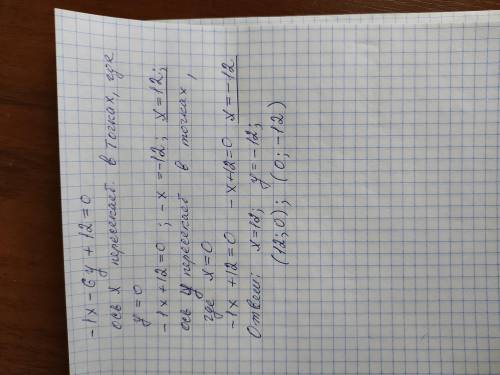 -1x-6y+12=0
ось x пересекает в точках, где
y=0
-1x+12=0; -x=-12; x=12;
ось y пересекает в точках,
где x=0
-1x+12=0 -x+12=0 x=-12
Ответ: x=12; y=-12;
(12;0); (0;-12)